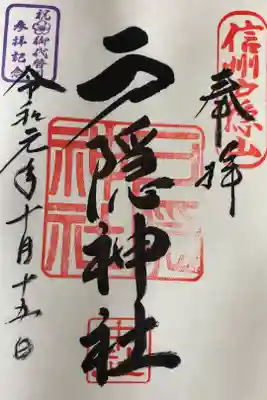 信州戸隠山
奉拝
戸隠神社
戸隠
神社
祝 御代替
参拝記念
令和元年十月十五日